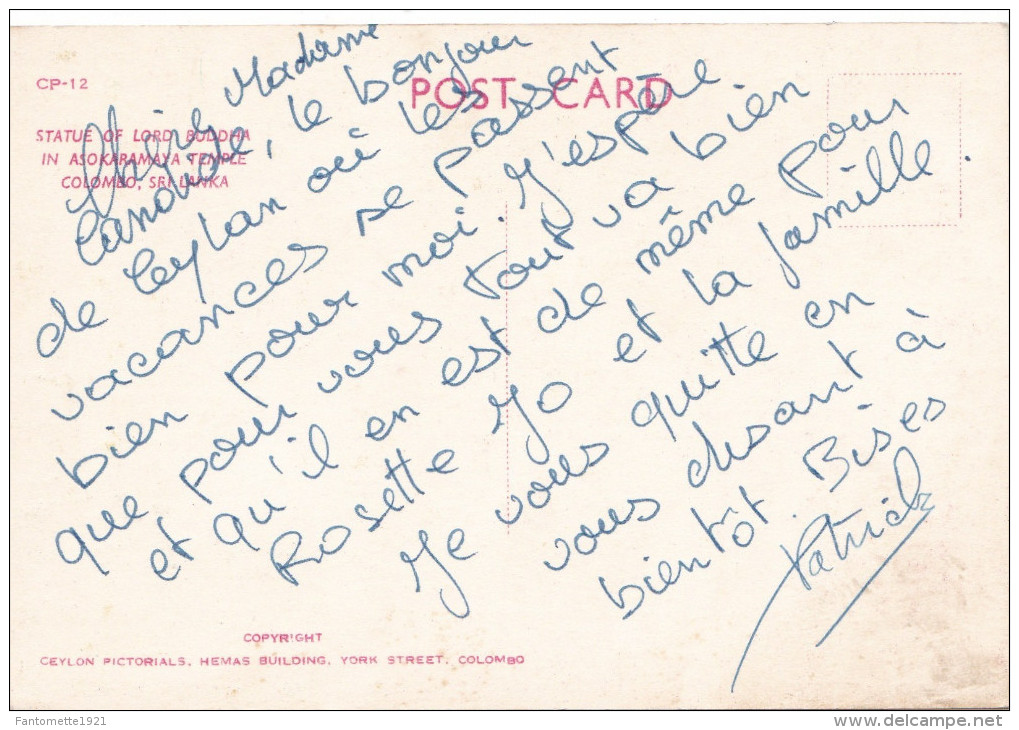 CP-12
POST CARD
STATUE OF LORD BUDDHA
IN ASOKARAMAYA TEMPLE
COLOMBO, SRI LANKA
Chère Madame
le bonjour
de Ceylan où les
vacances se passent
bien pour moi. J'espère
que pour vous tout va bien
et qu'il en est de même pour
Rosette Jo et la famille.
Je vous quitte en
vous disant à
bientôt Bises
Patrick
COPYRIGHT
CEYLON PICTORIALS. HEMAS BUILDING, YORK STREET, COLOMBO
Fantomette1921
www.delcampe.net